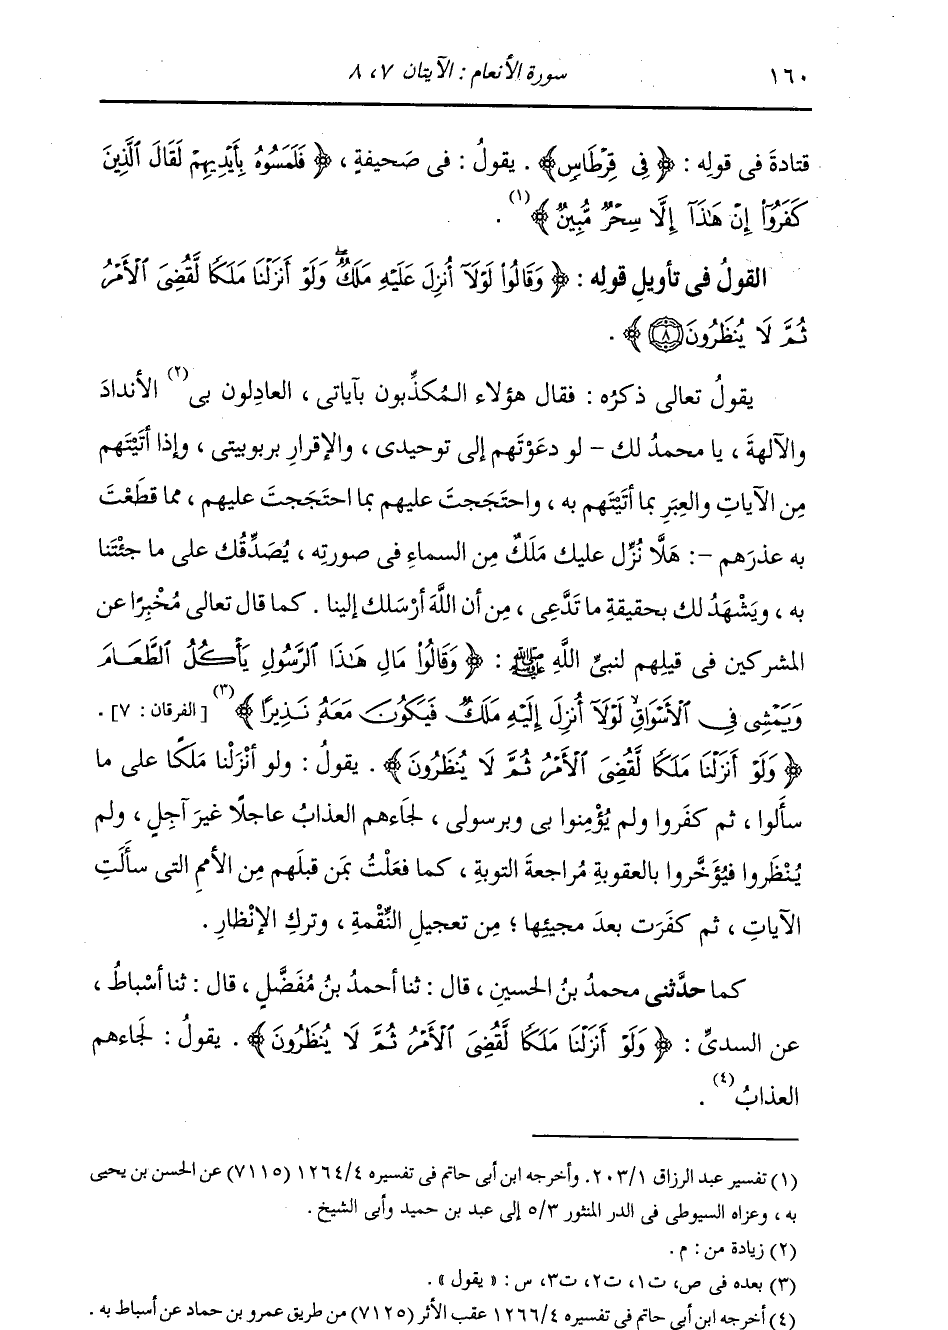 ١٦٠ سورة الأنعام : الآيتان ٧، ٨
قتادةَ فى قولِه : ﴿ فِى قِرْطَاسٍ﴾ . يقولُ : فى صَحيفةٍ ، ﴿ فَلَمَسُوهُ بِأَيْدِيهِمْ لَقَالَ ٱلَّذِينَ
كَفَرُوٓا۟ إِنْ هَـٰذَآ إِلَّا سِحْرٌ مُّبِينٌ ﴾(١) .
القولُ فى تأويلِ قولِه : ﴿ وَقَالُوا۟ لَوْلَآ أُنزِلَ عَلَيْهِ مَلَكٌ ۖ وَلَوْ أَنزَلْنَا مَلَكًا لَّقُضِىَ ٱلْأَمْرُ
ثُمَّ لَا يُنظَرُونَ ٨ ﴾ .
يقولُ تعالى ذكرُه : فقال هؤلاء المُكذِّبون بآياتى ، العادِلون بى(٢) الأندادَ
والآلهةَ ، يا محمدُ لك - لو دعَوْتَهم إلى توحيدى ، والإقرارِ بربوبيتى ، وإذا أتَيْتَهم
مِن الآياتِ والعِبَرِ بما أتَيْتَهم به ، واحتَجَجتَ عليهم بما احتَجَجتَ عليهم ، مما قطَعْتَ
به عذرَهم -: هَلَّا نُزِّل عليك مَلَكٌ مِن السماءِ فى صورتِه ، يُصَدِّقُك على ما جئْتَنا
به ، ويَشْهَدُ لك بحقيقةِ ما تَدَّعِى ، مِن أن اللَّهَ أرْسَلك إلينا . كما قال تعالى مُخْبِرًا عن
المشركين فى قيلِهم لنبىِّ اللَّهِ ﷺ : ﴿ وَقَالُوا۟ مَالِ هَـٰذَا ٱلرَّسُولِ يَأْكُلُ ٱلطَّعَامَ
وَيَمْشِى فِى ٱلْأَسْوَاقِ ۙ لَوْلَآ أُنزِلَ إِلَيْهِ مَلَكٌ فَيَكُونَ مَعَهُۥ نَذِيرًا ﴾(٣) [الفرقان : ٧] .
﴿ وَلَوْ أَنزَلْنَا مَلَكًا لَّقُضِىَ ٱلْأَمْرُ ثُمَّ لَا يُنظَرُونَ ﴾ . يقولُ : ولو أنْزَلْنا مَلَكًا على ما
سأَلوا ، ثم كفَروا ولم يُؤْمِنوا بى وبرسولى ، لجاءهم العذابُ عاجلًا غيرَ آجِلٍ ، ولم
يُنْظَروا فيُؤَخَّروا بالعقوبةِ مُراجعةَ التوبةِ ، كما فعَلْتُ بمَن قبلَهم مِن الأممِ التى سأَلَتِ
الآياتِ ، ثم كفَرَت بعدَ مجيئِها ؛ مِن تعجيلِ النِّقْمةِ ، وتركِ الإنْظارِ .
كما حدَّثنى محمدُ بنُ الحسينِ ، قال : ثنا أحمدُ بنُ مُفَضَّلٍ ، قال : ثنا أسْباطُ ،
عن السدىِّ : ﴿ وَلَوْ أَنزَلْنَا مَلَكًا لَّقُضِىَ ٱلْأَمْرُ ثُمَّ لَا يُنظَرُونَ ﴾ . يقولُ : لجاءهم
العذابُ(٤) .
(١) تفسير عبد الرزاق ٢٠٣/١. وأخرجه ابن أبى حاتم فى تفسيره ١٢٦٤/٤ (٧١١٥) عن الحسن بن يحيى
به ، وعزاه السيوطى فى الدر المنثور ٥/٣ إلى عبد بن حميد وأبى الشيخ .
(٢) زيادة من : م .
(٣) بعده فى ص، ت١، ت٢، ت٣، س : « يقول » .
(٤) أخرجه ابن أبى حاتم فى تفسيره ١٢٦٦/٤ عقب الأثر (٧١٢٥) من طريق عمرو بن حماد عن أسباط به .